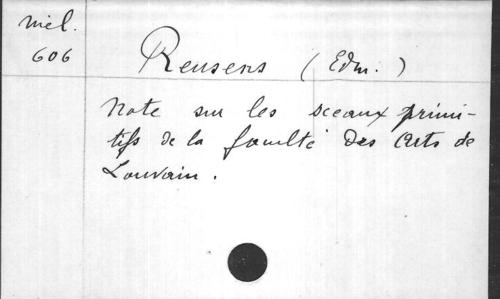 Mél.
606
Reusens (Edm.)
Note sur les sceaux primi-
tifs de la faculté des Arts de
Louvain.